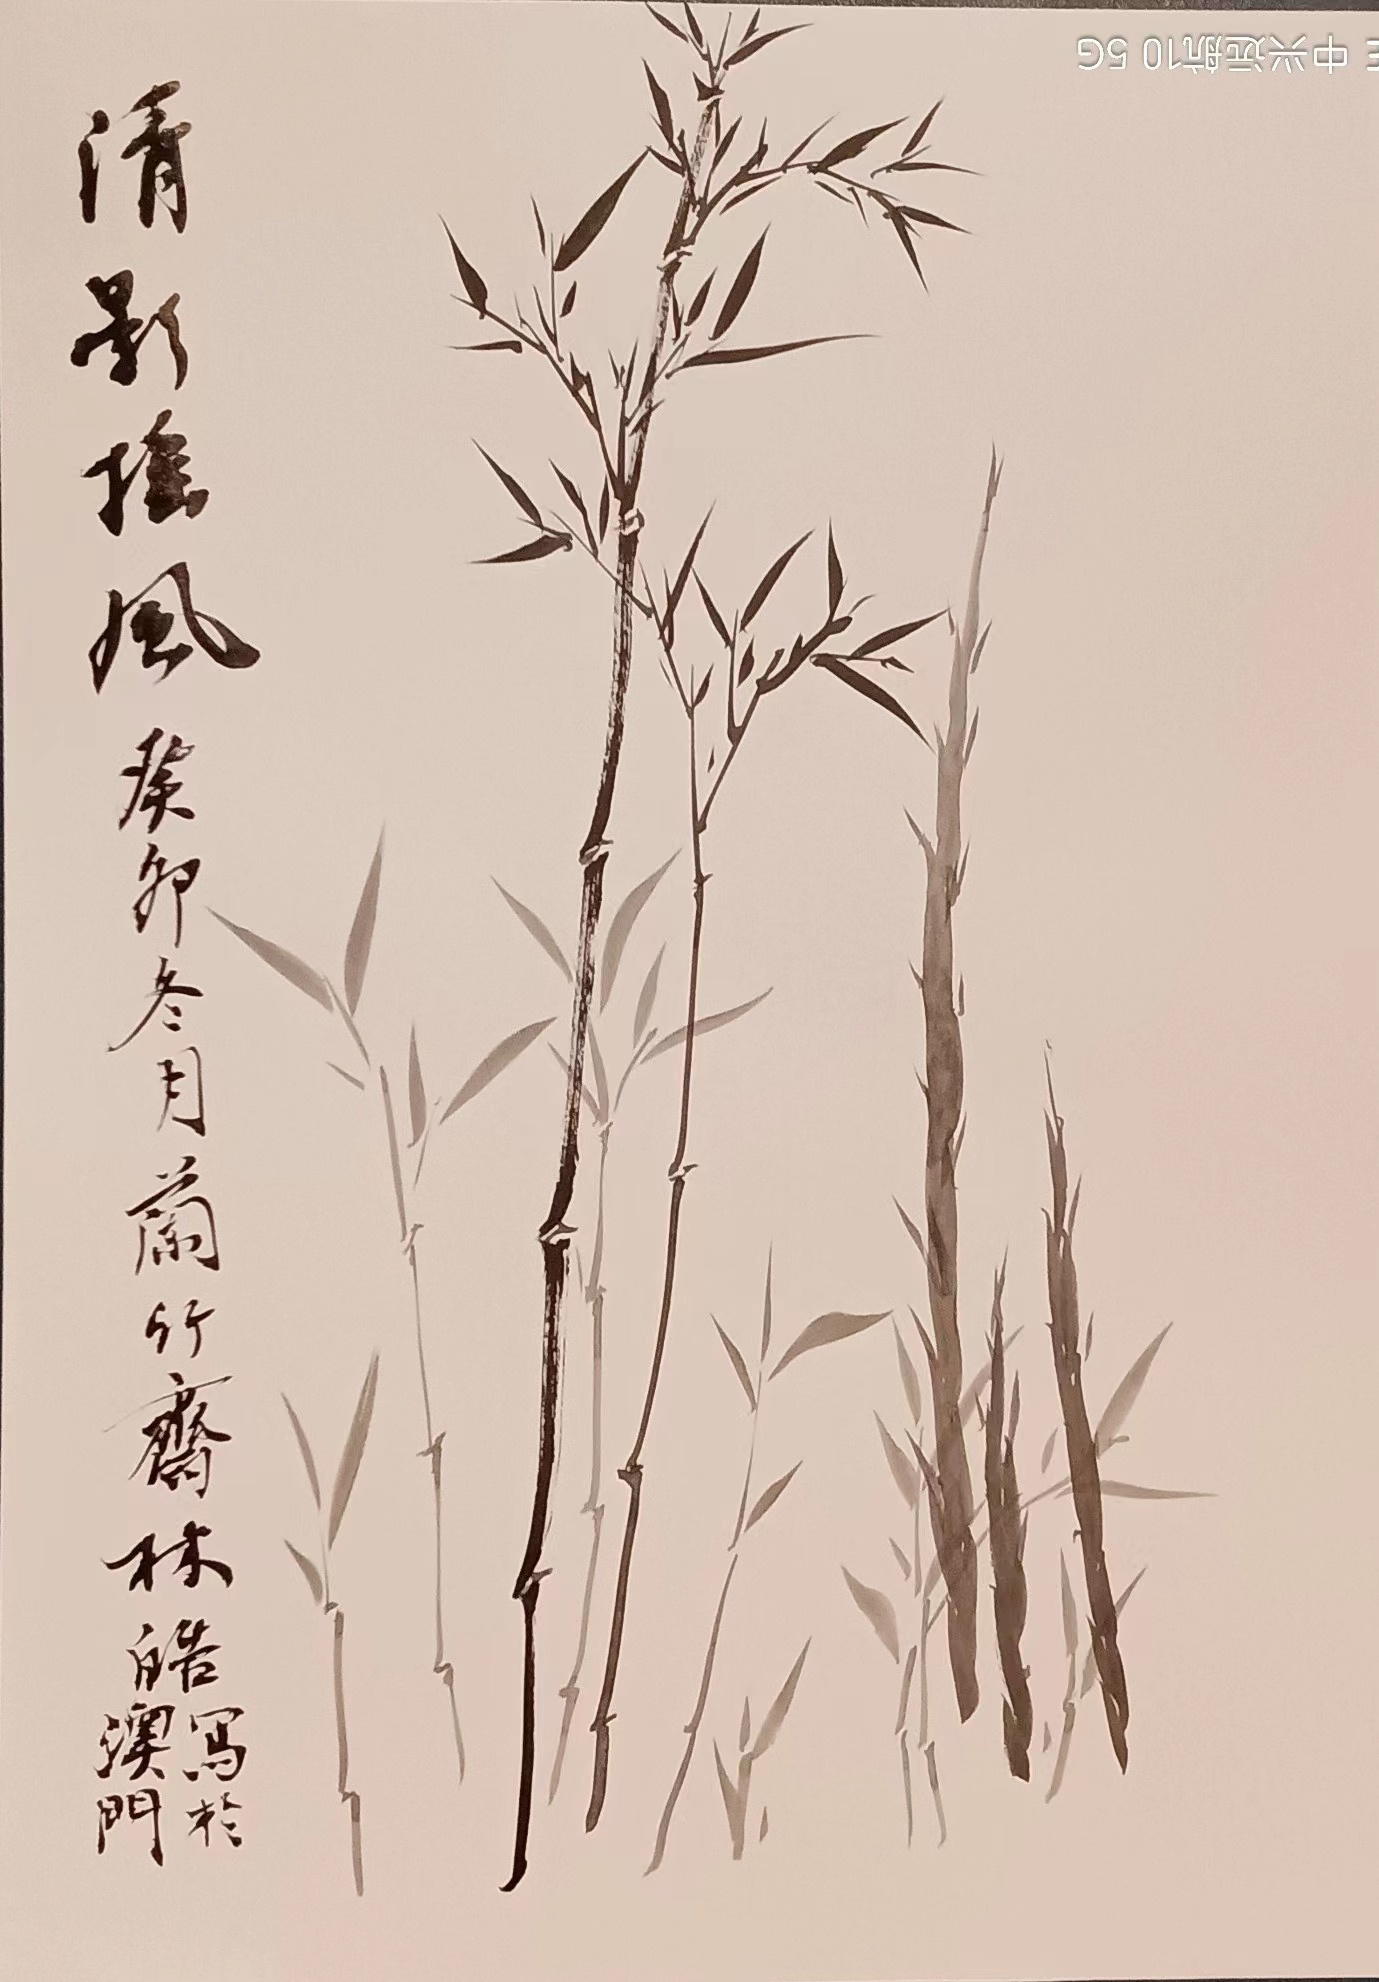 清影摇風
癸卯冬月蘭竹齋林皓寫於
澳門
中兴远航10 5G